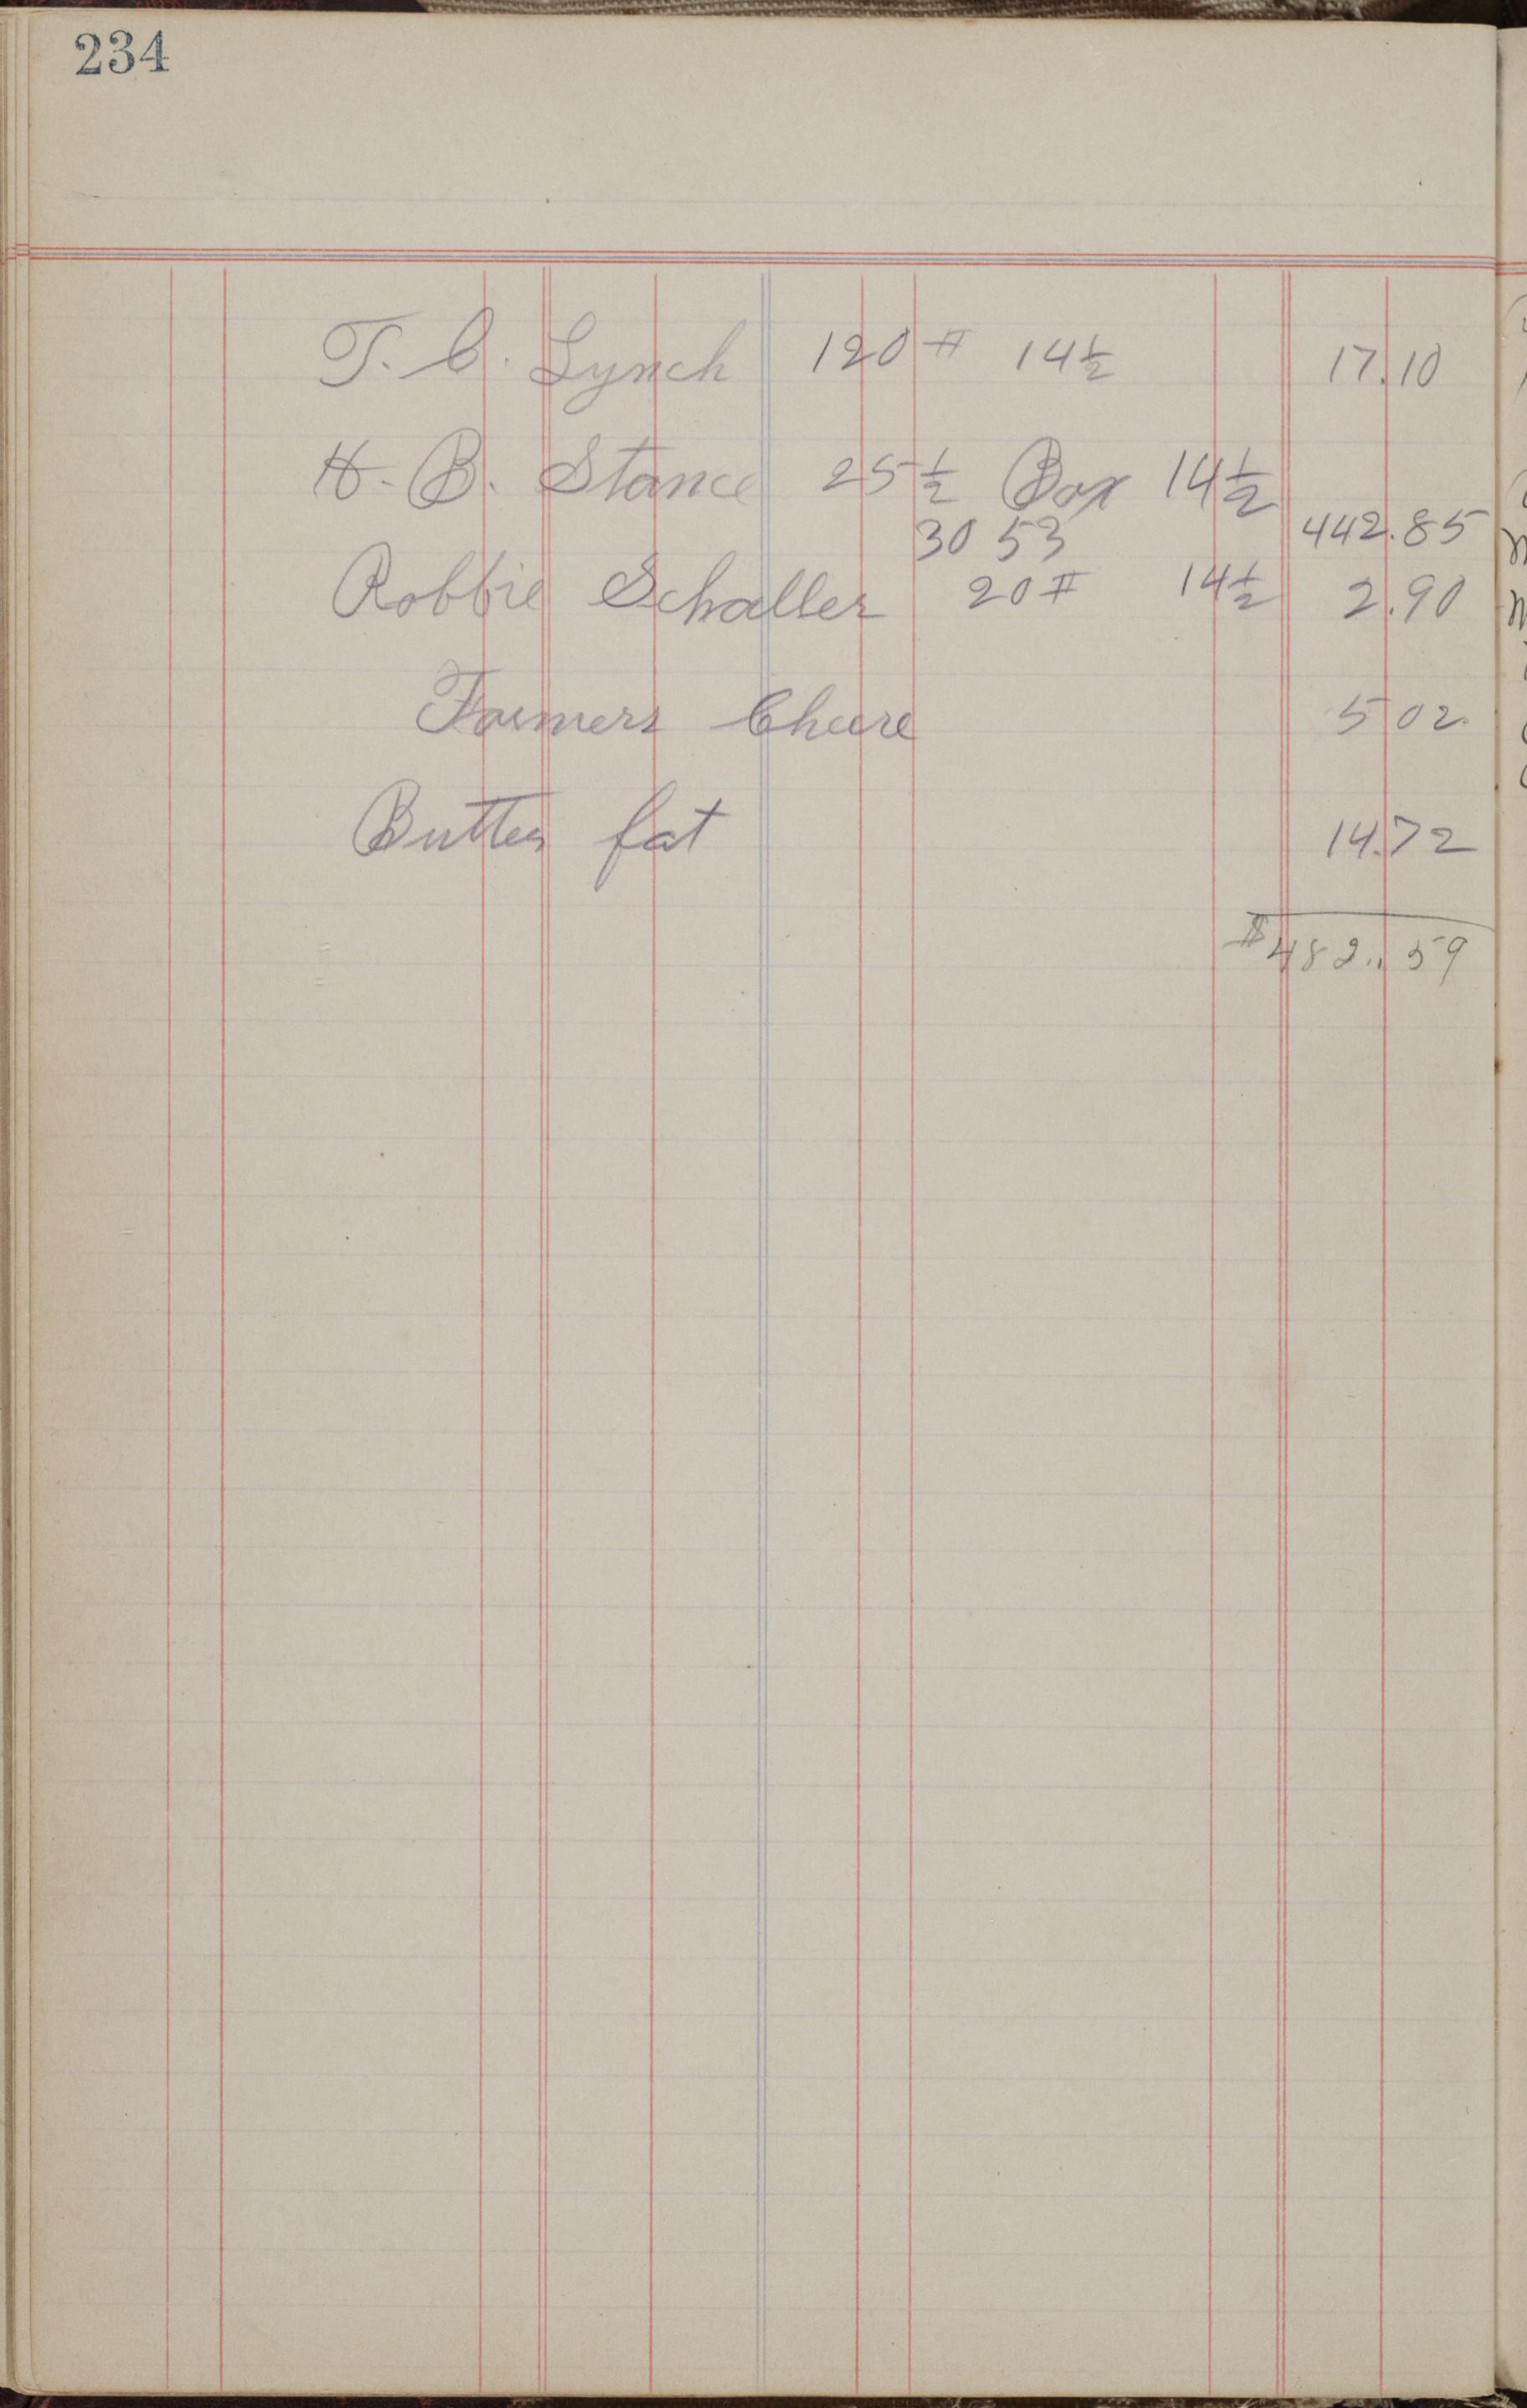 234
T. C. Lynch 120 # 14½ 17.10
H. B. Stance 25½ Box 14½
30 53 442.85
Robbie Schaller 20 # 14½ 2.90
Farmers Cheese 5 02
Butter fat 14.72
$482.59